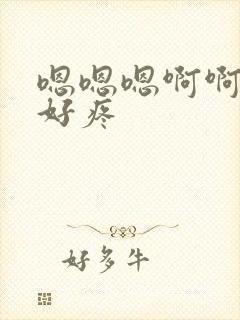 嗯嗯嗯啊啊
好疼
好多牛